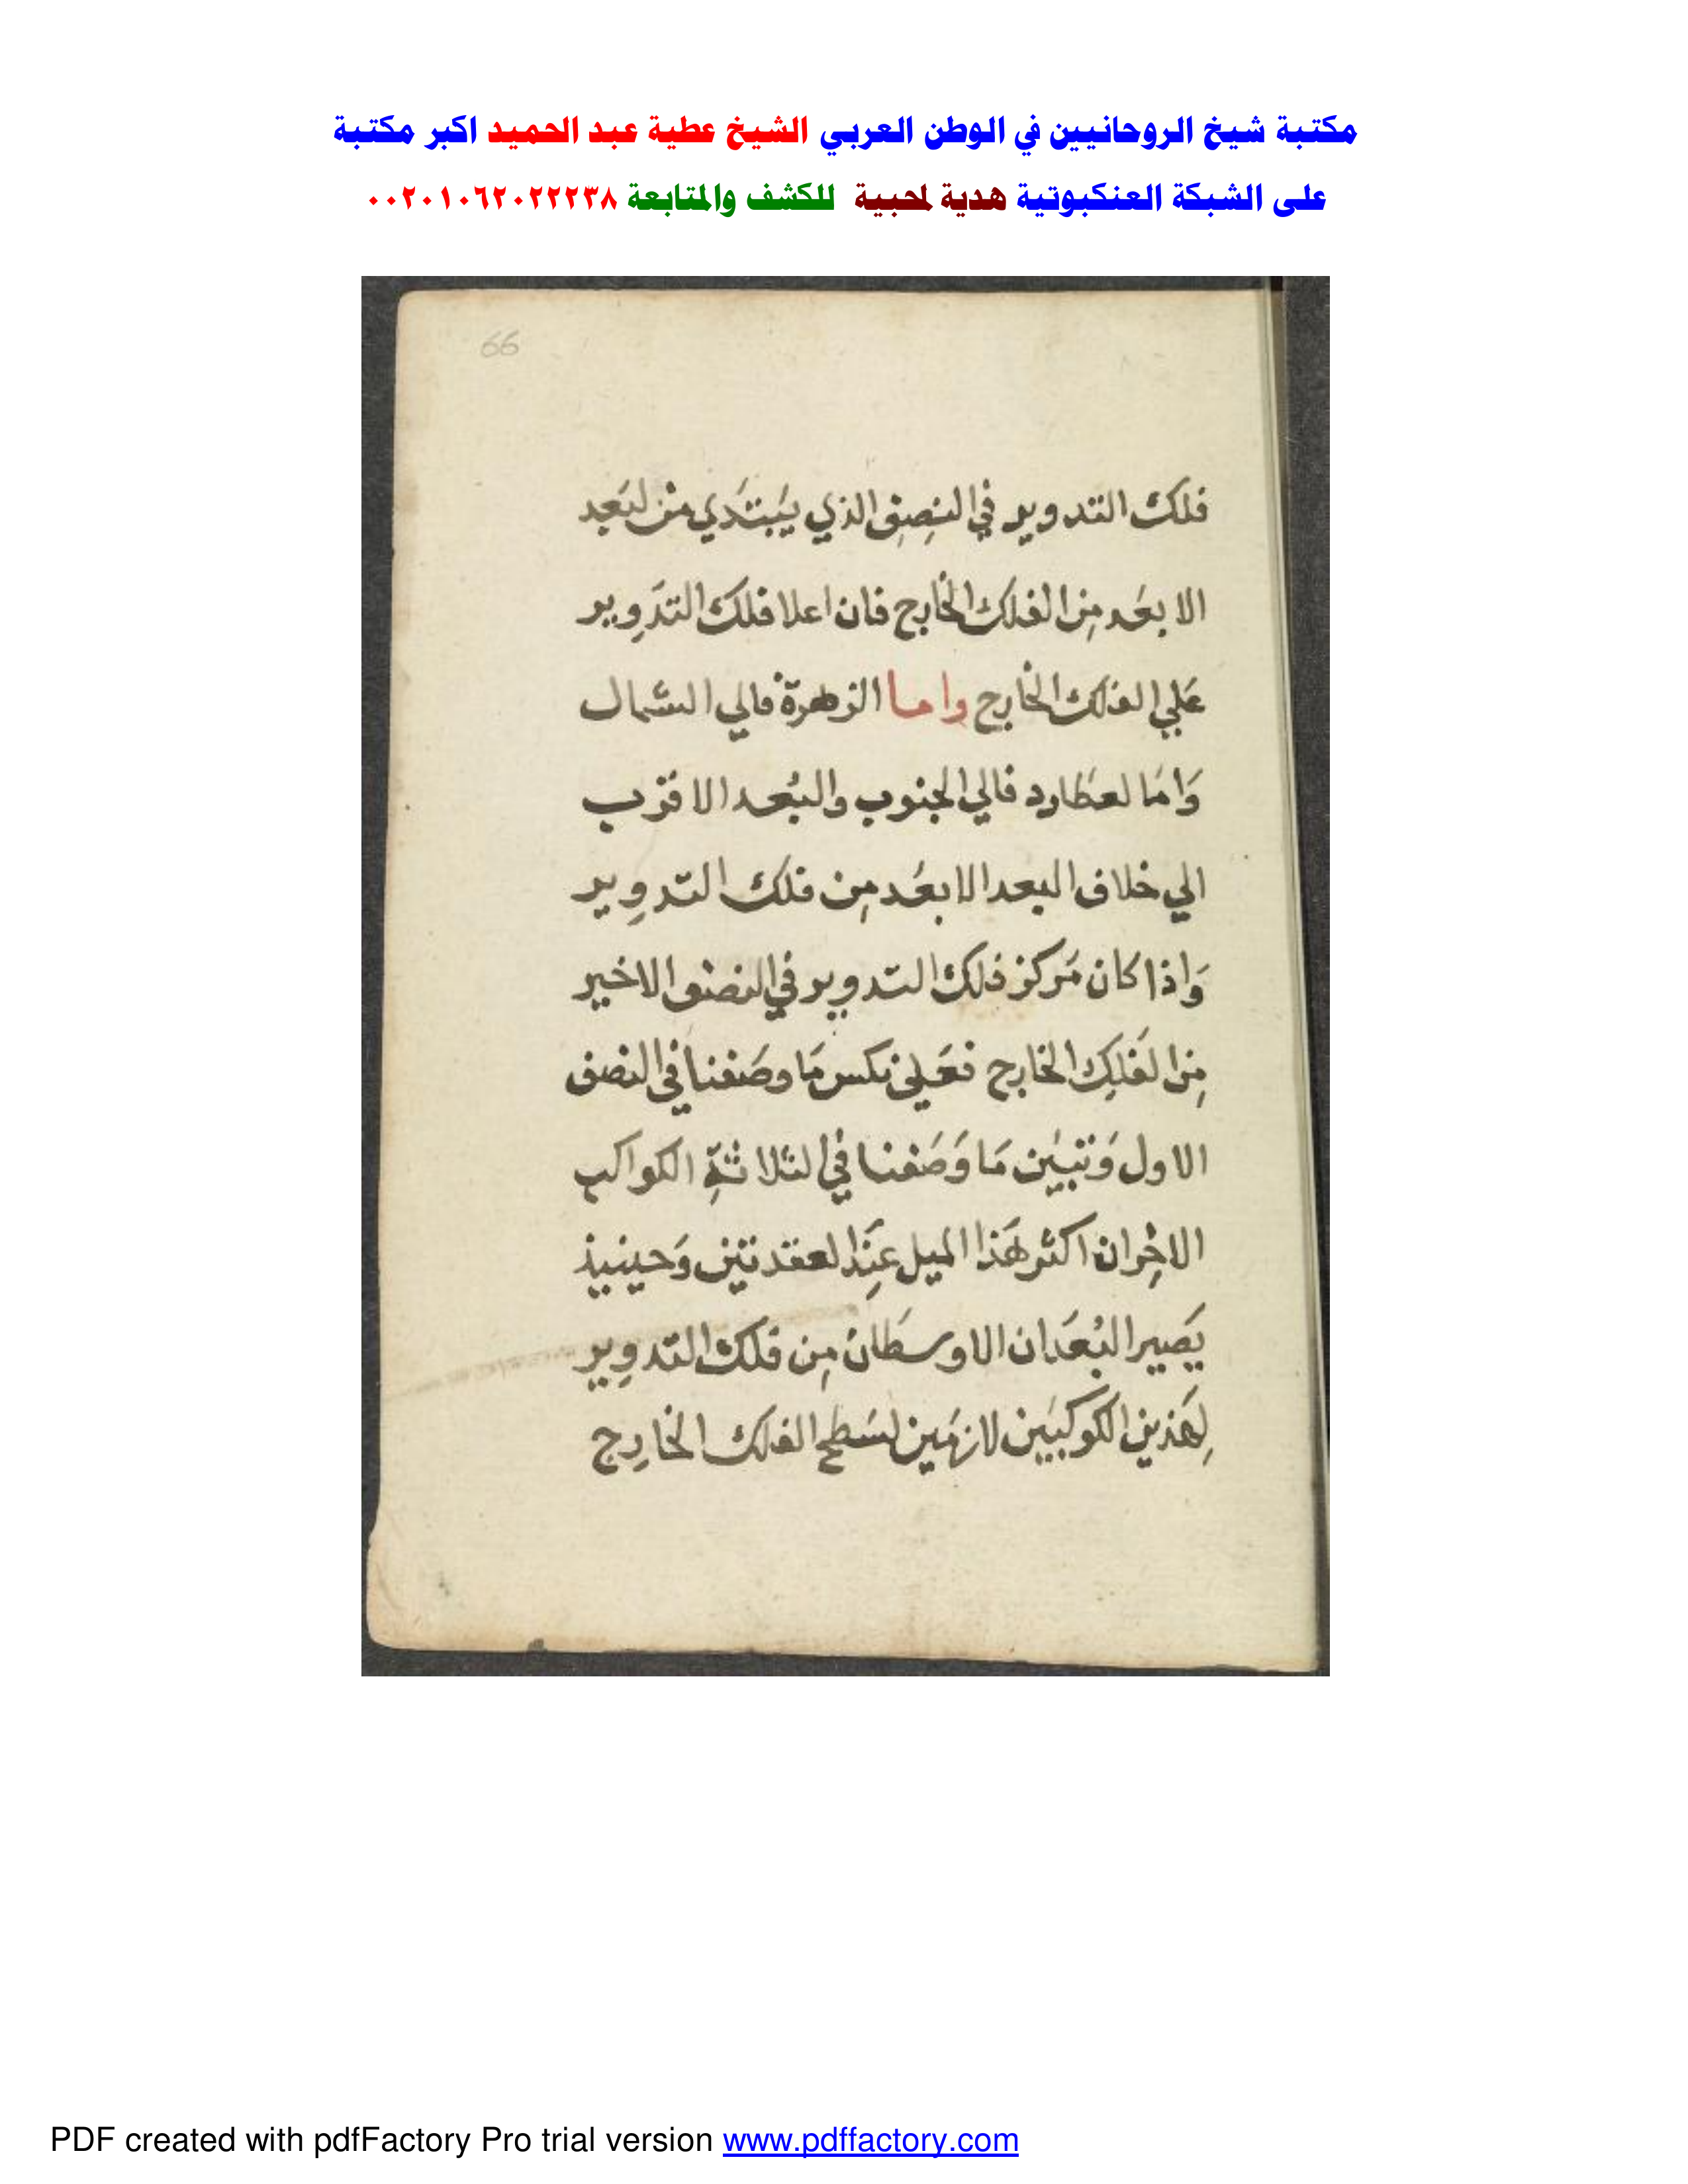 مكتبة شيخ الروحانيين في الوطن العربي الشيخ عطية عبد الحميد اكبر مكتبة
على الشبكة العنكبوتية هدية لمحبية للكشف والمتابعة ٠٠٢٠١٠٦٢٠٢٢٢٣٨
66
فلك التدوير في النصف الذي يبتدي من لبعد
الابعد من الفلك الخارج فان اعلا فلك التدوير
علي الفلك الخارج واما الزهرة فالي الشمال
واما لعطارد فالي الجنوب والبُعد الاقرب
الي خلاف البعد الابعُد مِن فلك التدوير
وَاذا كان مَركز فلك التدوير في النصف الاخير
مِن الفلك الخارج فعَلي نكس مَا وصَفنا في النصف
الاول وَتبيَن مَا وَصَفنا في الثلاثة الكواكب
الاخِر ان اكثر هَذا الميل عِند العقدتين وَحينيذ
يَصير البُعدَان الاوسطَان مِن فلك التدوير
لِهَذين الكوكبَين لازمَين لسَطح الفلك الخارِج
PDF created with pdfFactory Pro trial version www.pdffactory.com